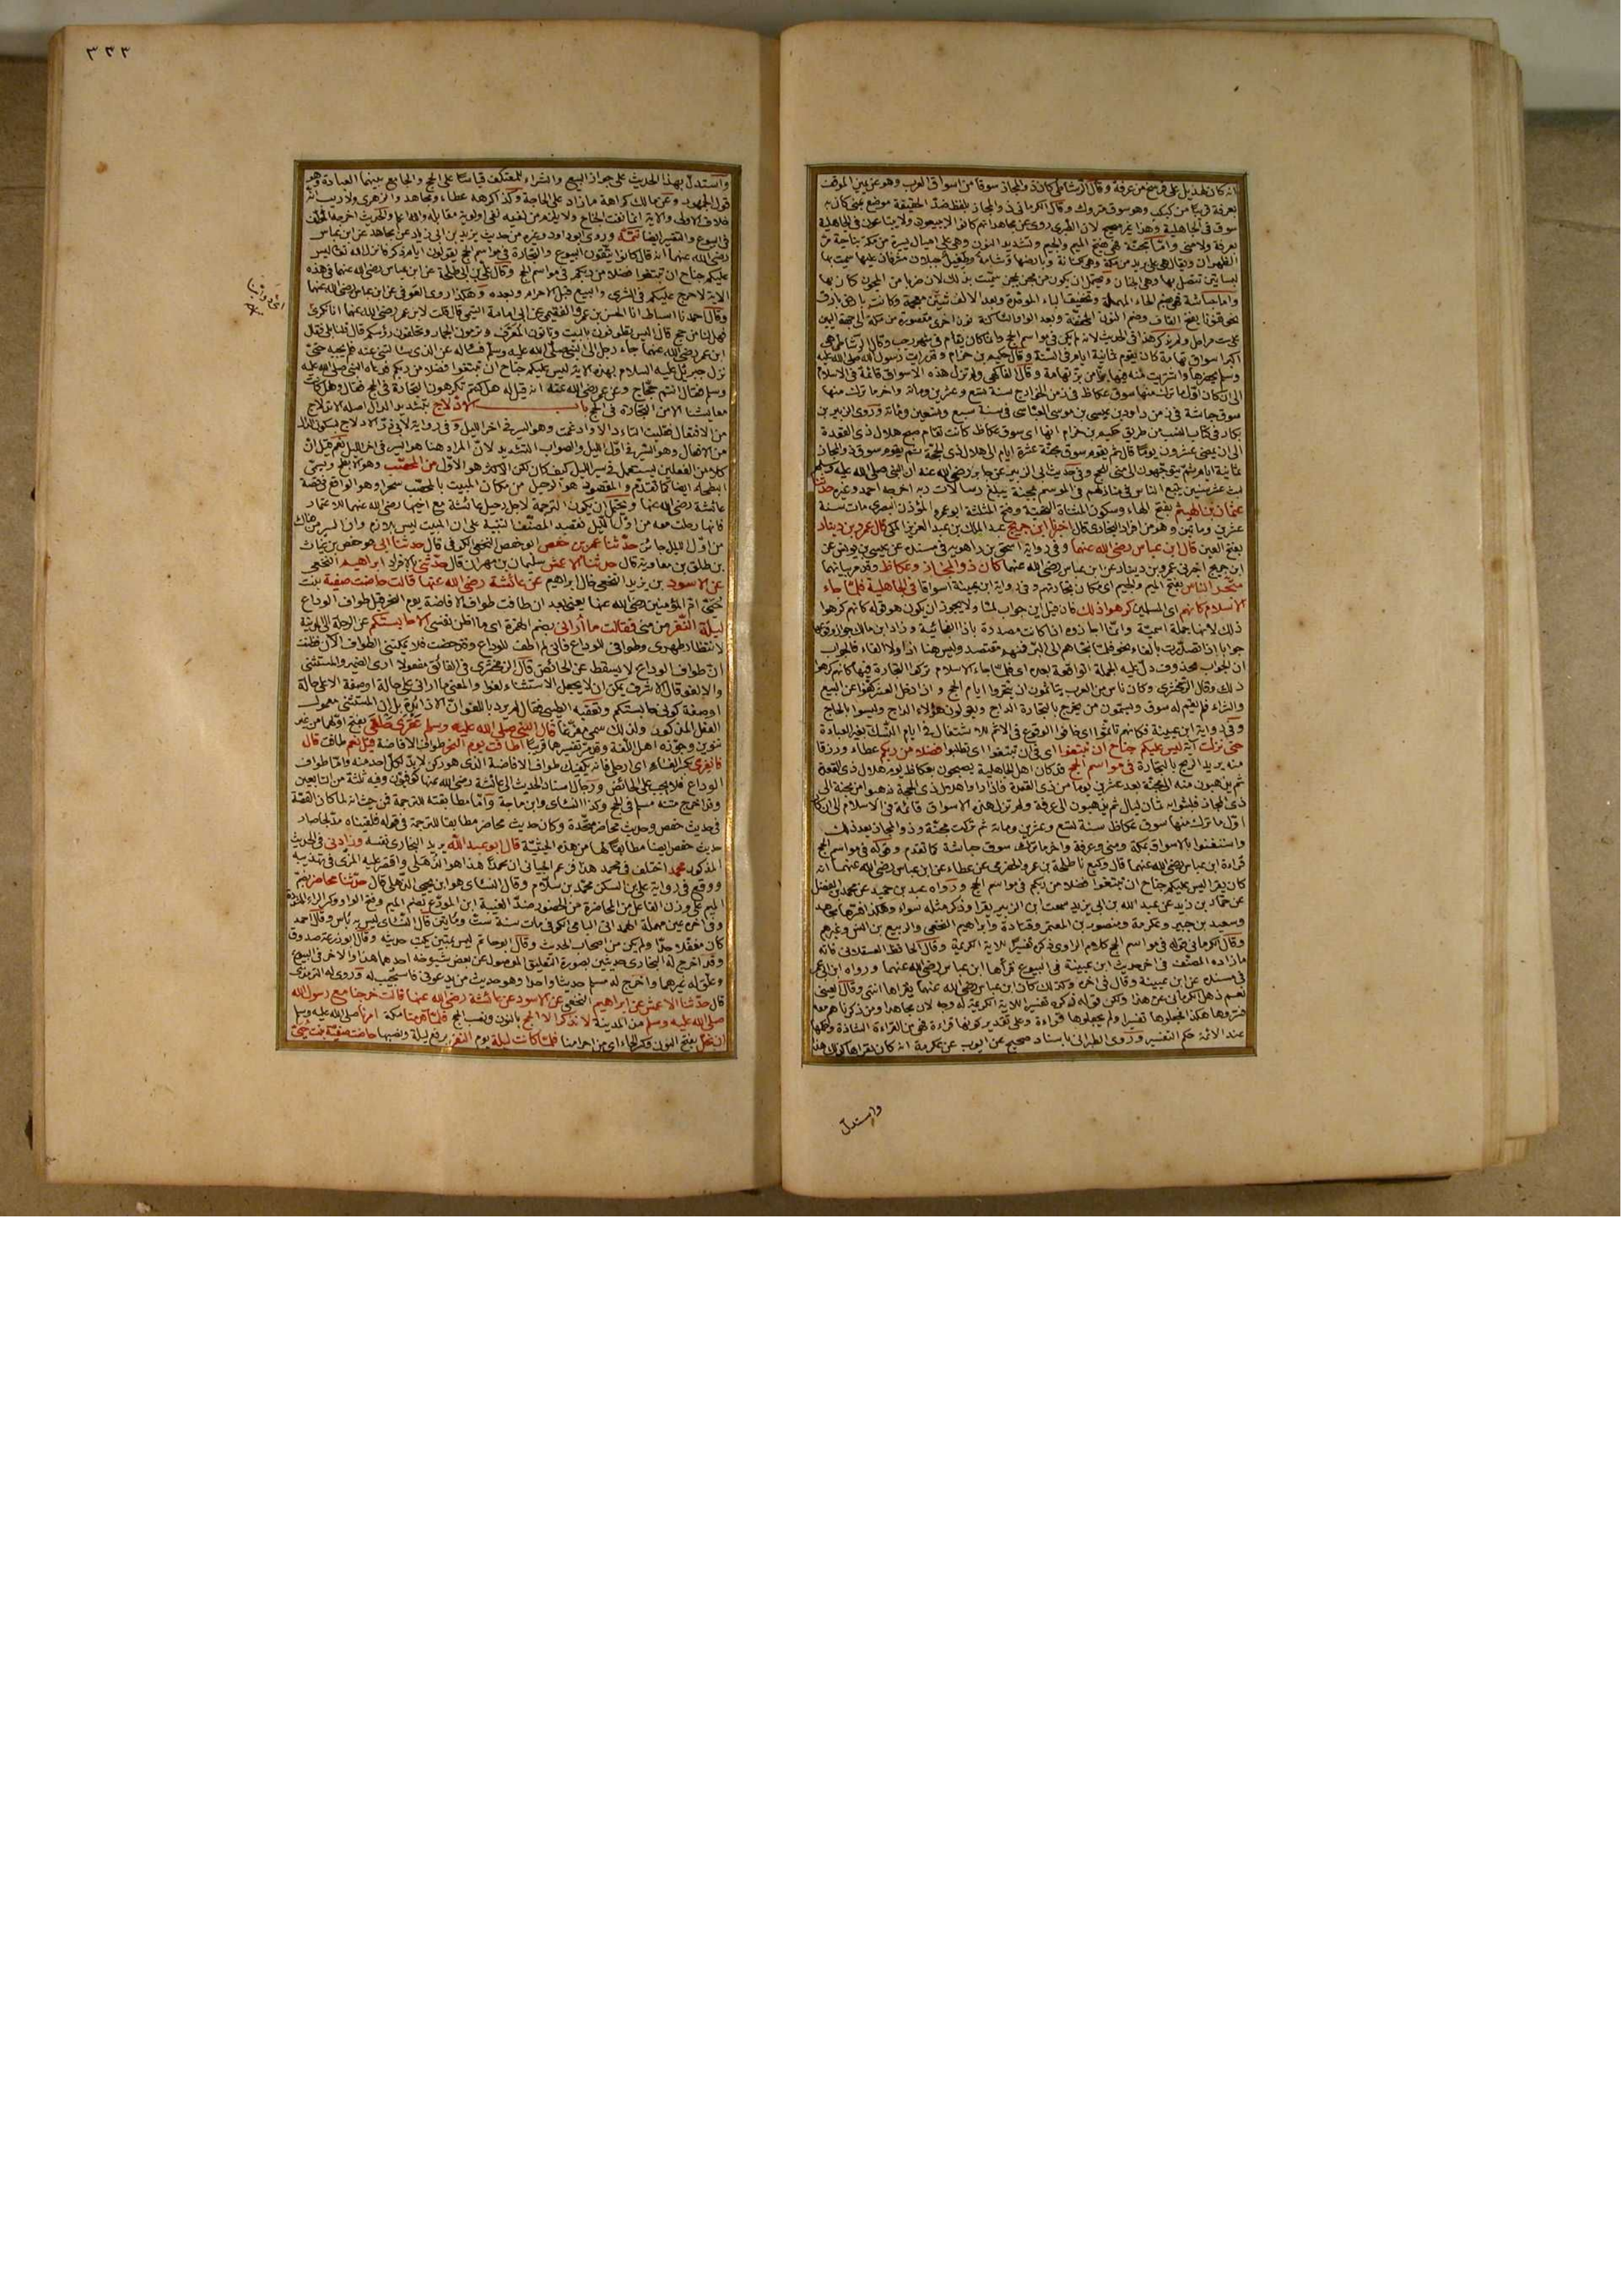 انه كان لهذيل على فرسخ من عرفة وقال الرشاطي كان ذو المجاز سوقا من اسواق العرب وهو عن يمين الموقف
بعرفة قريبا من كبكب وهو سوق متروك وقال الكرماني ذو المجاز بلفظ ضد الحقيقة موضع بمنى كان به
سوق في الجاهلية وهذا غير صحيح لان الطبري روى عن مجاهد انهم كانوا لا يبيعون ولا يبتاعون في الجاهلية
بعرفة ولا منى واما مجنة فهي بفتح الميم والجيم وتشديد النون وهي على اميال يسيرة من مكة بناحية مر
الظهران ويقال هي على بريد من مكة وهي لكنانة وبارضها وشامة وطفيل جبلان مشرفان عليها سميت بها
لبساتين تتصل بها وهي الجنان ويحتمل ان يكون من مجن يمجن سميت بذلك لان ضربا من المجون كان بها
واما حباشة فهي بضم الحاء المهملة وتخفيف الباء الموحدة وبعد الالف شين معجمة وكانت بارض بارق
نحو قنونا بفتح القاف وضم النون المخففة وبعد الواو الساكنة نون اخرى مقصورة من مكة الى جهة اليمن
على ست مراحل ولم يذكر هذا في الحديث لانه لم يكن في مواسم الحج وانما كان يقام في شهر رجب وقال الرشاطي هي
اكبر اسواق تهامة كان يقوم ثمانية ايام في السنة وقال حكيم بن حزام وقد رايت رسول الله صلى الله عليه
وسلم يحضرها واشتريت منه فيها بزا من بز تهامة وقال الفاكهي ولم تزل هذه الاسواق قائمة في الاسلام
الى ان كان اول ما ترك منها سوق عكاظ في زمن الخوارج سنة تسع وعشرين ومائة واخر ما ترك منها
سوق حباشة في زمن داود بن عيسى بن موسى العباسي في سنة سبع وتسعين ومائة وروى الزبير بن
بكار في كتاب النسب من طريق حكيم بن حزام انها اى سوق عكاظ كانت تقام صبح هلال ذي القعدة
الى ان يمضي عشرون يوما قال ثم يقوم سوق مجنة عشرة ايام الى هلال ذي الحجة ثم يقوم سوق ذي المجاز
ثمانية ايام ثم يتوجهون الى منى للحج وفي حديث ابي الزبير عن جابر رضي الله عنه ان النبي صلى الله عليه وسلم
لبث عشر سنين يتبع الناس في منازلهم في الموسم بمجنة يبلغ رسالات ربه اخرجه احمد وغيره حدثنا
عثمان بن الهيثم بفتح الهاء وسكون المثناة التحتية وفتح المثلثة ابو عمرو المؤذن البصري مات سنة
عشرين ومائتين وهو من افراد البخاري قال اخبرنا ابن جريج عبد الملك بن عبد العزيز المكي قال عمرو بن دينار
بفتح العين قال ابن عباس رضي الله عنهما وفي رواية اسحق بن راهويه في مسنده عن عيسى بن يونس عن
ابن جريج اخبرني عمرو بن دينار عن ابن عباس رضي الله عنهما كان ذو المجاز وعكاظ وقد مر بيانهما
متجر الناس بفتح الميم والجيم اى مكان تجارتهم وفي رواية ابن عيينة اسواقا في الجاهلية فلما جاء
الاسلام كانهم اى المسلمين كرهوا ذلك فان قيل اين جواب لما ولا يجوز ان يكون هو قوله كانهم كرهوا
ذلك لانها جملة اسمية وانما اجازوه اذا كانت مصدرة باذا الفجائية وزاد ابن مالك جواز وقوعها
جوابا اذا تصدرت بالفاء نحو فلما نجاهم الى البر فمنهم مقتصد وليس هنا اذا ولا الفاء فالجواب
ان الجواب محذوف دل عليه الجملة الواقعة بعده اى فلما جاء الاسلام تركوا التجارة فيها كانهم كرهوا
ذلك وقال الزمخشري وكان ناس من العرب يتاثمون ان يتجروا ايام الحج واذا دخل العشر كفوا عن البيع
والشراء فلم يقم له سوق ويسمون من يخرج بالتجارة الداج ويقولون هؤلاء الداج وليسوا بالحاج
وفي رواية ابن عيينة فكانهم تاثموا اى خافوا الوقوع في الاثم للاشتغال في ايام النسك بغير العبادة
حتى نزلت آية ليس عليكم جناح ان تبتغوا اى في ان تبتغوا اى تطلبوا فضلا من ربكم عطاء ورزقا
منه يريد الربح بالتجارة في مواسم الحج قد كان اهل الجاهلية يصبحون بعكاظ يوم هلال ذي القعدة
ثم يذهبون منه الى مجنة بعد عشرين يوما من ذي القعدة فاذا راوا هلال ذي الحجة ذهبوا من مجنة الى
ذي المجاز فلبثوا به ثمان ليال ثم يذهبون الى عرفة ولم تزل هذه الاسواق قائمة في الاسلام الى ان كان
اول ما ترك منها سوق عكاظ سنة تسع وعشرين ومائة ثم تركت مجنة وذو المجاز بعد ذلك
واستغنوا بالاسواق بمكة ومنى وعرفة واخر ما ترك سوق حباشة كما تقدم وقوله في مواسم الحج
قراءة ابن عباس رضي الله عنهما قال وكيع نا طلحة بن عمرو الحضرمي عن عطاء عن ابن عباس رضي الله عنهما انه
كان يقرا ليس عليكم جناح ان تبتغوا فضلا من ربكم في مواسم الحج ورواه عبد بن حميد عن محمد بن الفضل
عن حماد بن زيد عن عبد الله بن ابي يزيد سمعت ابن الزبير يقرا وذكر مثله سواء وهكذا فسرها مجاهد
وسعيد بن جبير وعكرمة ومنصور بن المعتمر وقتادة وابراهيم النخعي والربيع بن انس وغيرهم
وقال الكرماني قوله في مواسم الحج كلام الراوي ذكره تفسيرا للاية الكريمة وقال الحافظ العسقلاني فاته
ما زاده المصنف في اخر حديث ابن عيينة في البيوع قراها ابن عباس رضي الله عنهما ورواه ابن ابي عمر
في مسنده عن ابن عيينة وقال في اخره وكذلك كان ابن عباس رضي الله عنهما يقراها انتهى وقال العيني
نعم ذهل الكرماني عن هذا ولكن قوله ذكره تفسيرا للاية الكريمة له وجه لان مجاهدا ومن ذكرناهم معه
فسروها هكذا فجعلوها تفسيرا ولم يجعلوها قراءة وعلى تقدير كونها قراءة فهي من القراءة الشاذة وحكمها
عند الائمة حكم التفسير وروى الطبراني باسناد صحيح عن ايوب عن عكرمة انه كان يقراها كذلك هذا
واستدل
٣٣٣
واستدل بهذا الحديث على جواز البيع والشراء للمعتكف قياسا على الحج والجامع بينهما العبادة وهو
قول الجمهور وعن مالك كراهة ما زاد على الحاجة وكذا كرهه عطاء ومجاهد والزهري ولا ريب انه
خلاف الاولى والاية انما نفت الجناح ولا يلزم من نفيه نفي اولوية مقابله والله اعلم والحديث اخرجه المؤلف
في البيوع والتفسير ايضا تتمة وروى ابو داود وغيره من حديث يزيد بن ابي زياد عن مجاهد عن ابن عباس
رضي الله عنهما انه قال كانوا يتقون البيوع والتجارة في مواسم الحج يقولون ايام ذكر فانزل الله تعالى ليس
عليكم جناح ان تبتغوا فضلا من ربكم في مواسم الحج وقال علي بن ابي طلحة عن ابن عباس رضي الله عنهما في هذه
الاية لا حرج عليكم في الشرى والبيع قبل الاحرام وبعده وهكذا روى العوفي عن ابن عباس رضي الله عنهما
وقال احمد نا اسباط انا الحسن بن عمرو الفقيمي عن ابي امامة التيمي قال قلت لابن عمر رضي الله عنهما انا نكري
فهل لنا من حج قال اليس تطوفون بالبيت وتاتون المعرف وترمون الجمار وتحلقون رؤسكم قال قلنا بلى فقال
ابن عمر رضي الله عنهما جاء رجل الى النبي صلى الله عليه وسلم فساله عن الذي سالتني عنه فلم يجبه حتى
نزل جبرئيل عليه السلام بهذه الاية ليس عليكم جناح ان تبتغوا فضلا من ربكم فدعاه النبي صلى الله عليه
وسلم فقال انتم حجاج وعن عمر رضي الله عنه انه قيل له هل كنتم تكرهون التجارة في الحج فقال وهل كانت
معايشنا الا من التجارة في الحج باب الادلاج بتشديد الدال اصله الادتلاج
من الافتعال فقلبت التاء دالا وادغمت وهو السير في اخر الليل وفي رواية لابي ذر الادلاج بسكون الدال
من الافعال وهو السير في اول الليل والصواب التشديد لان المراد هنا هو السير في اخر الليل نعم قيل ان
كلا من الفعلين يستعمل في سير الليل كيف كان لكن الاكثر هو الاول من المحصب وهو الابطح ويسمى
البطحاء ايضا كما تقدم والمقصود هو الرحيل من مكان المبيت بالمحصب سحرا وهو الواقع في قصة
عائشة رضي الله عنها ويحتمل ان يكون الترجمة لاجل رحيل عائشة مع اخيها رضي الله عنهما للاعتمار
فانها رحلت معه من اول الليل فقصد المصنف التنبيه على ان المبيت ليس بلازم وان السير من هناك
من اول الليل جائز حدثنا عمر بن حفص ابو حفص النخعي الكوفي قال حدثنا ابي هو حفص بن غياث
بن طلق بن معاوية قال حدثنا الاعمش سليمان بن مهران قال حدثني بالافراد ابراهيم النخعي
عن الاسود بن يزيد النخعي خال ابراهيم عن عائشة رضي الله عنها قالت حاضت صفية بنت
حيي ام المؤمنين رضي الله عنها يعني بعد ان طافت طواف الافاضة يوم النحر قبل طواف الوداع
ليلة النفر من منى فقالت ما اراني بضم الهمزة اى ما اظن نفسي الا حابستكم عن الرحلة الى المدينة
لانتظار طهري وطوافي للوداع فاني لم اطف للوداع وقد حضت فلا يمكنني الطواف الآن فظنت
ان طواف الوداع لا يسقط عن الحائض قال الزمخشري في الفائق مفعولا ارى الضمير والمستثنى
والا لغو وقال الاشرف يمكن ان لا يجعل الاستثناء لغوا والمعنى ما اراني على حالة او صفة الا على حالة
او صفة كوني حابستكم وتعقبه الطيبي فقال لم يرد باللغو ان الا زائدة بل ان المستثنى معمول
الفعل المذكور ولذلك سمي مفرغا قال النبي صلى الله عليه وسلم عقرى حلقى بفتح اولهما من غير
تنوين وجوزه اهل اللغة وقد مر تفسيرها قريبا اطافت يوم النحر طواف الافاضة قيل نعم طافت قال
فانفري بكسر الفاء اى ارحلي فانه يكفيك طواف الافاضة الذي هو ركن لا بد لكل احد منه واما طواف
الوداع فلا يجب على الحائض ورجال اسناد الحديث الى عائشة رضي الله عنها كوفيون وفيه ثلثة من التابعين
وقد اخرج متنه مسلم في الحج وكذا النسائي وابن ماجة واما مطابقته للترجمة فمن حيث انه لما كان القصة
في حديث حفص وحديث محاضر متحدة وكان حديث محاضر مطابقا للترجمة في قوله فلقيناه مدلجا صار
حديث حفص ايضا مطابقا لها من هذه الحيثية قال ابو عبد الله يريد البخاري نفسه وزادني في الحديث
المذكور محمد اختلف في محمد هذا فزعم الجياني ان محمدا هذا هو الذهلي واقتصر عليه المزي في تهذيبه
ووقع في رواية علي بن السكن محمد بن سلام وقال النسائي هو ابن يحيى الذهلي قال حدثنا محاضر بضم
الميم على وزن الفاعل من المحاضرة من الحضور ضد الغيبة ابن المورع بضم الميم وفتح الواو وكسر الراء المشددة
وفي اخره عين مهملة الهمداني اليامي الكوفي مات سنة ست ومائتين قال النسائي ليس به باس وقال احمد
كان مغفلا جدا ولم يكن من اصحاب الحديث وقال ابو حاتم ليس بمتين يكتب حديثه وقال ابو زرعة صدوق
وقد اخرج له البخاري حديثين بصورة التعليق الموصول عن بعض شيوخه احدهما هذا والاخر في البيوع
وعلق له غيرهما واخرج له مسلم حديثا واحدا وهو حديث من يدعوني فاستجيب له وروى له الترمذي
قال حدثنا الاعمش عن ابراهيم النخعي عن الاسود عن عائشة رضي الله عنها قالت خرجنا مع رسول الله
صلى الله عليه وسلم من المدينة لا نذكر الا الحج بالنون ونصب الحج فلما قدمنا مكة امرنا صلى الله عليه وسلم
ان نحل بفتح النون وكسر الحاء اى من احرامنا فلما كانت ليلة يوم النفر برفع ليلة ونصبها حاضت صفية بنت حيي